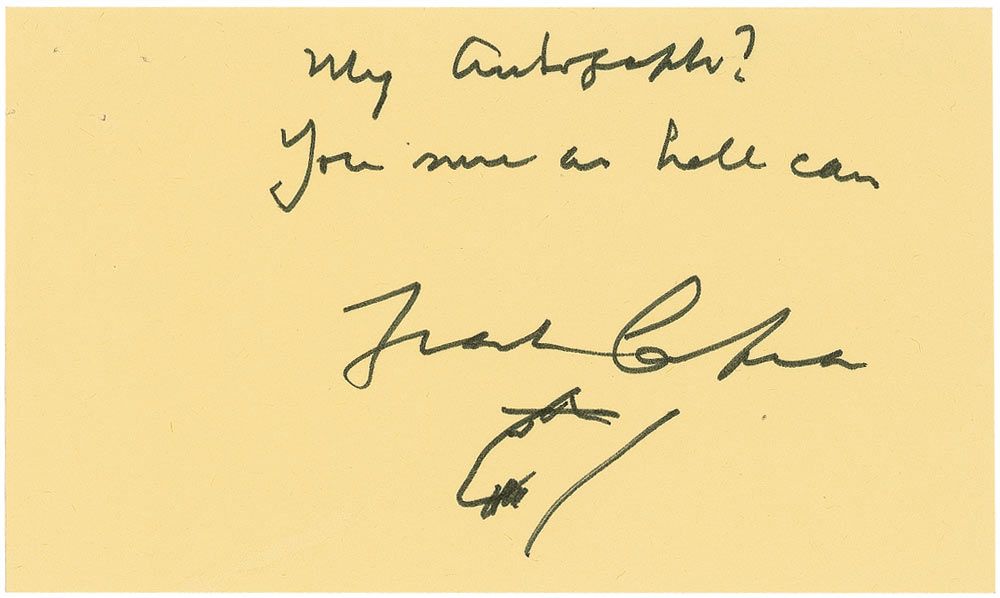 My Autograph?
You sure as hell can
Frank Capra